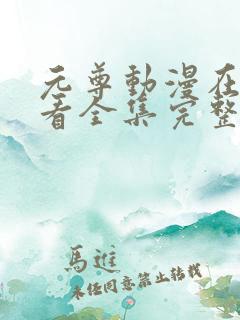 元尊動漫在
看全集完整
馬進
未经同意禁止转载